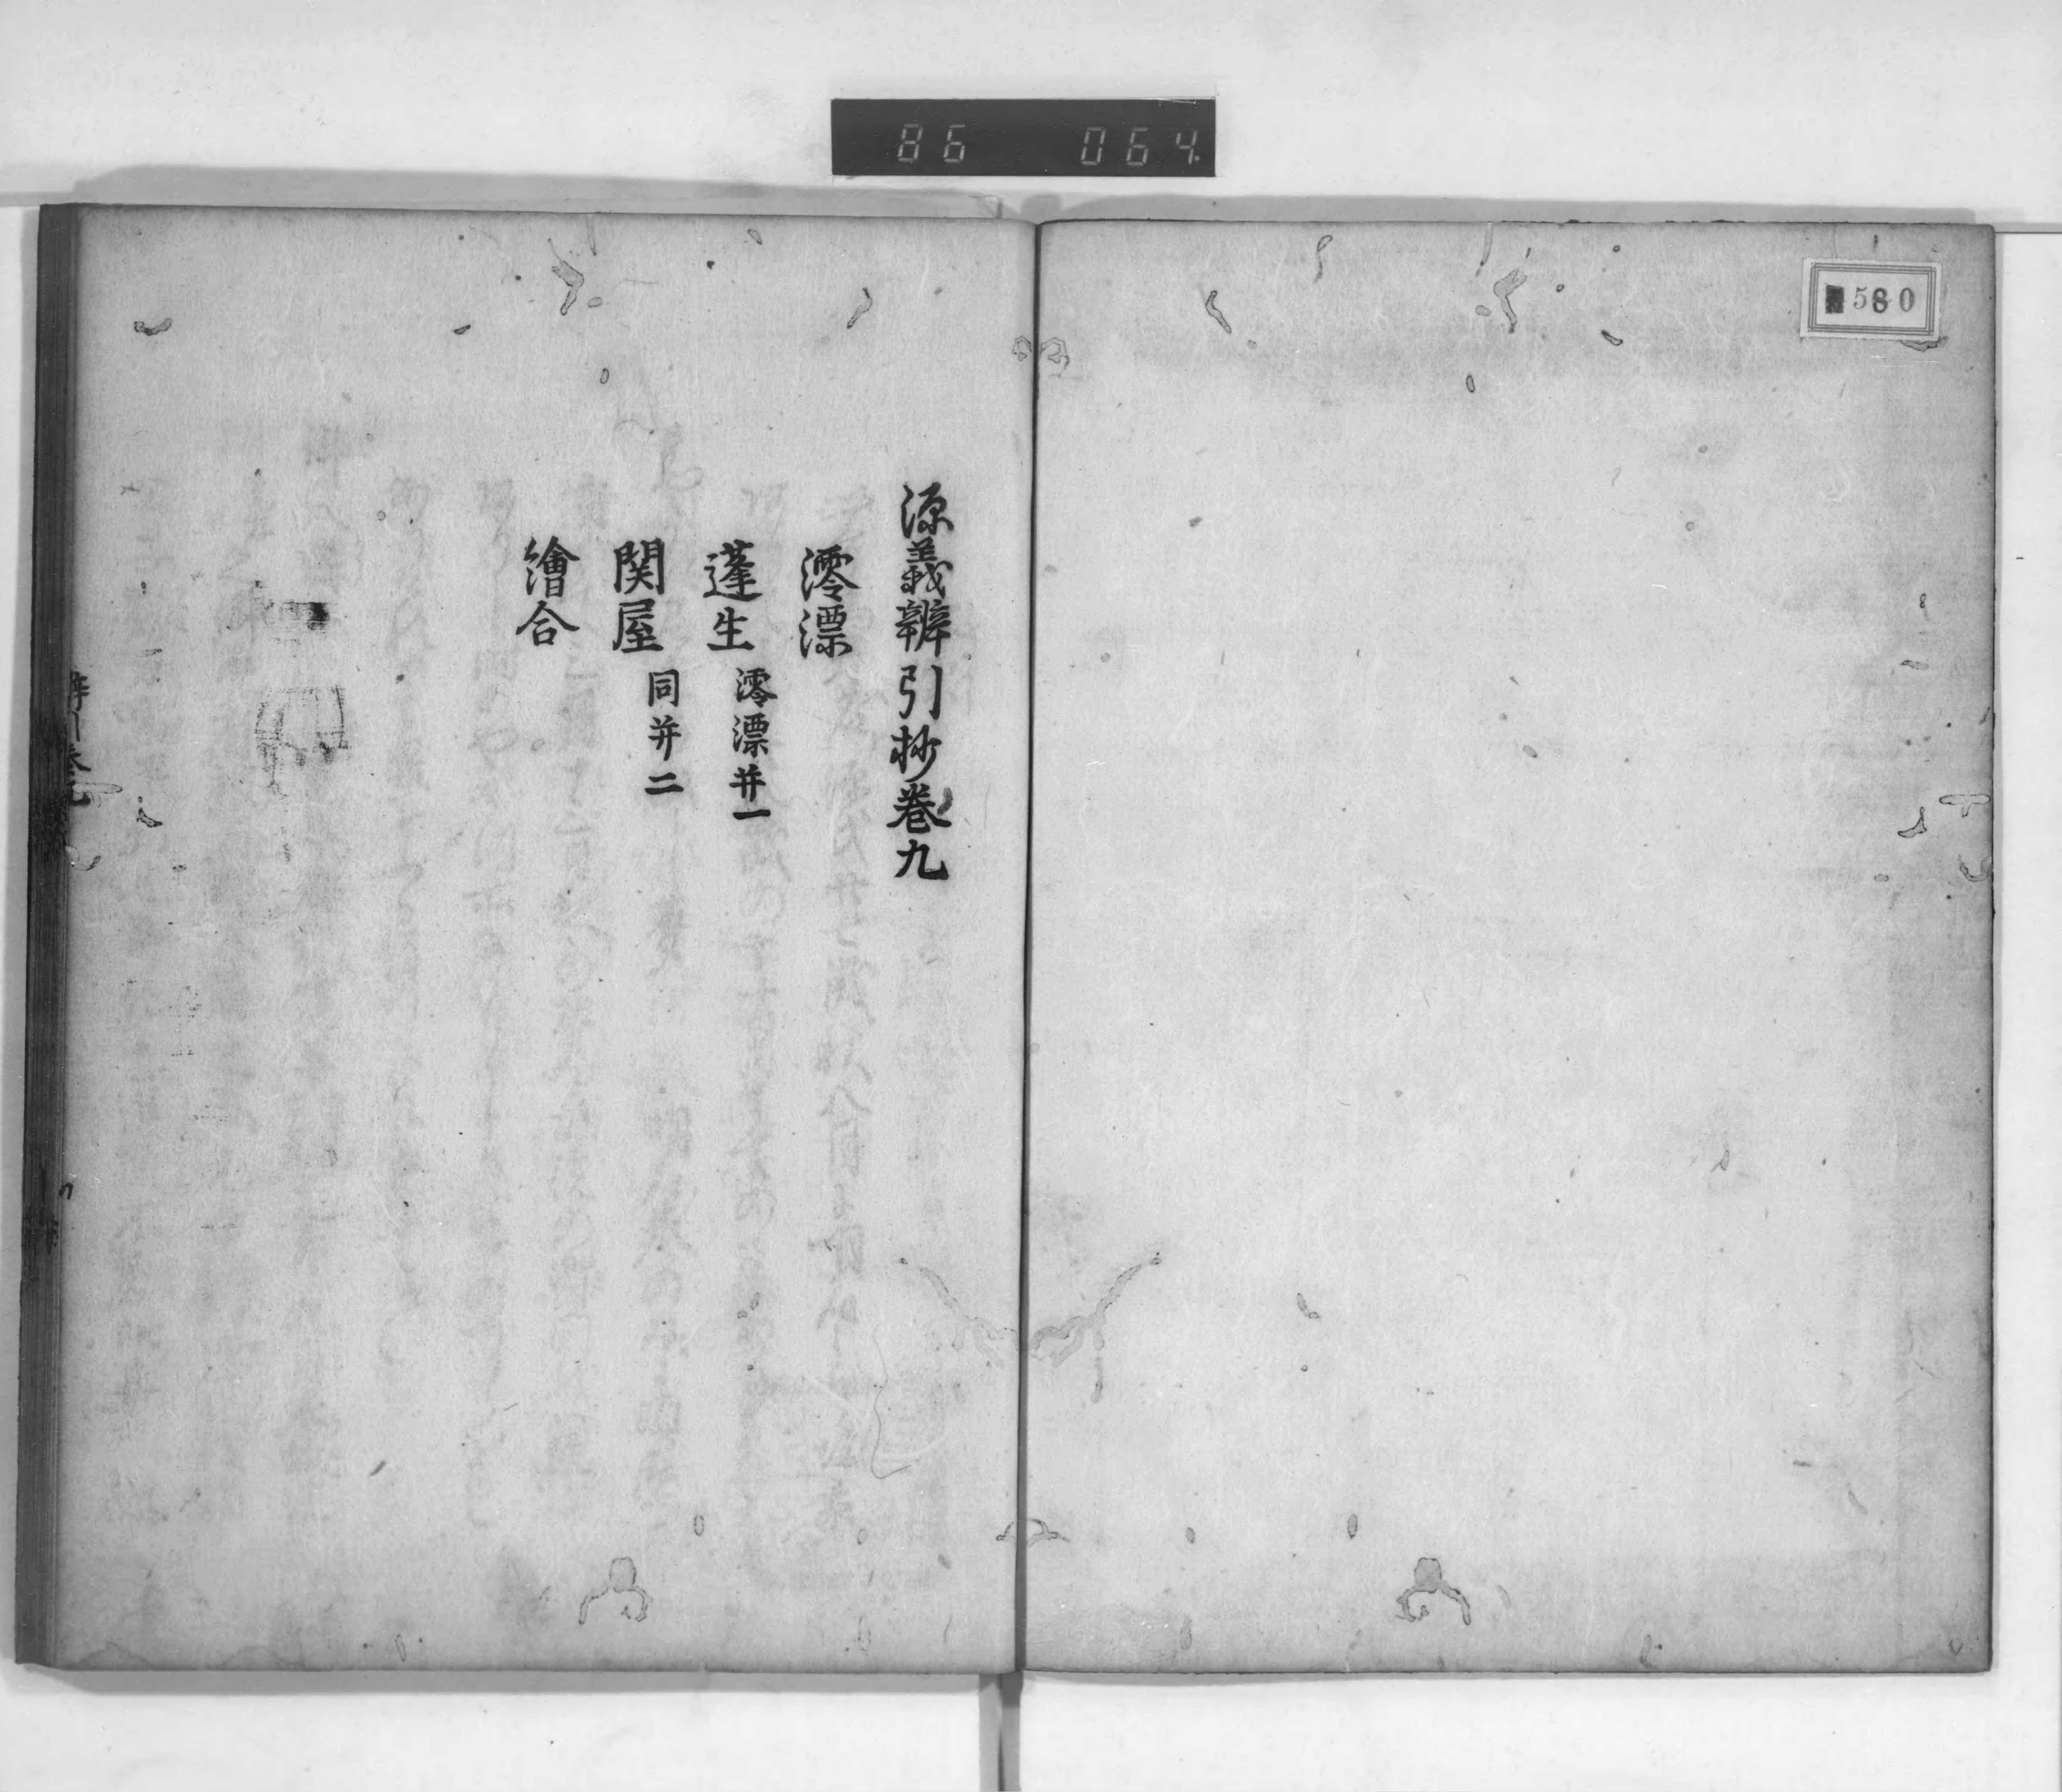 86 064
580
源義辨引抄卷九
澪漂
蓬生 澪漂并一
関屋 同并二
繪合